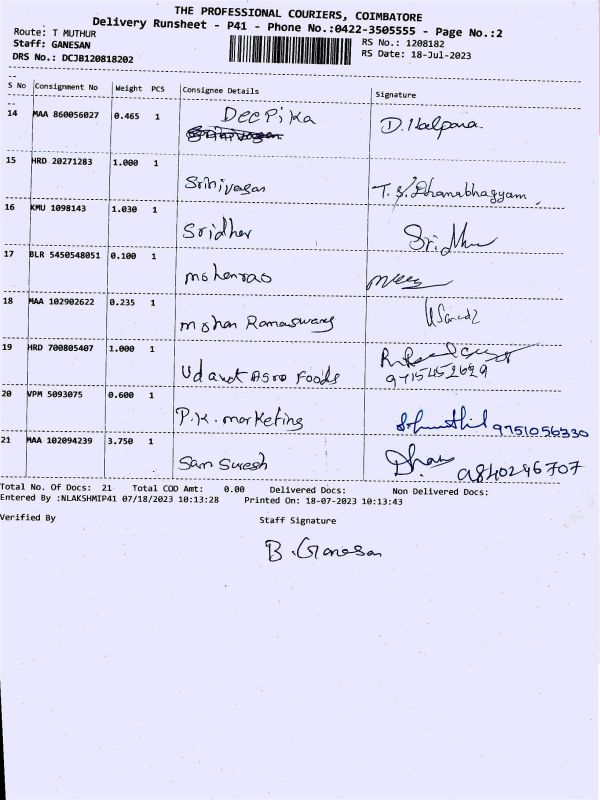 THE PROFESSIONAL COURIERS, COIMBATORE
Delivery Runsheet - P41 - Phone No.:0422-3505555 - Page No.:2
Route: T MUTHUR
Staff: GANESAN RS No.: 1208182
DRS No.: DCJB120818202 RS Date: 18-Jul-2023
S No Consignment No Weight PCS Consignee Details Signature
14 MAA 860056027 0.465 1 Deepika D. Kalpana.
15 HRD 20271283 1.000 1 Srinivasan T. S. Dhanabhagyam
16 KMU 1098143 1.030 1 Sridher Sridhar
17 BLR 5450548051 0.100 1 mohanrao
18 MAA 102902622 0.235 1 mohan Ramaswamy
19 HRD 700805407 1.000 1 Udawt Agro Foods
9715452629
20 VPM 5093075 0.600 1 P.K. marketing 9751056330
21 MAA 102094239 3.750 1 Sam Suresh 9840296707
Total No. Of Docs: 21 Total COD Amt: 0.00 Delivered Docs: Non Delivered Docs:
Entered By :NLAKSHMIP41 07/18/2023 10:13:28 Printed On: 18-07-2023 10:13:43
Verified By Staff Signature
B. Ganesan